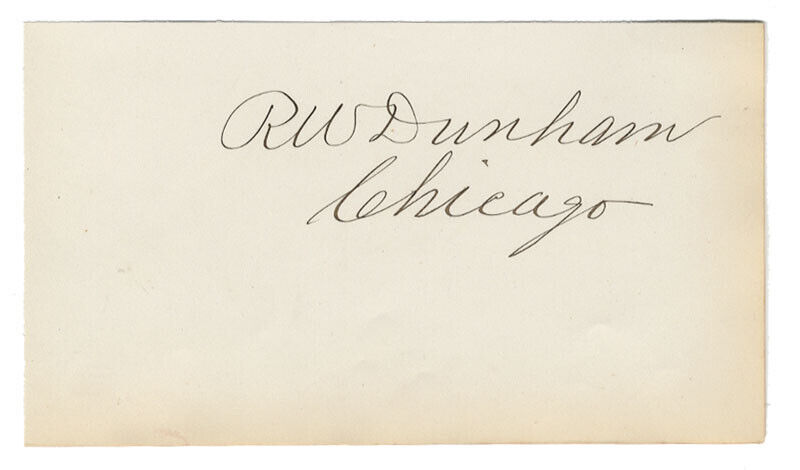 RW Dunham
Chicago